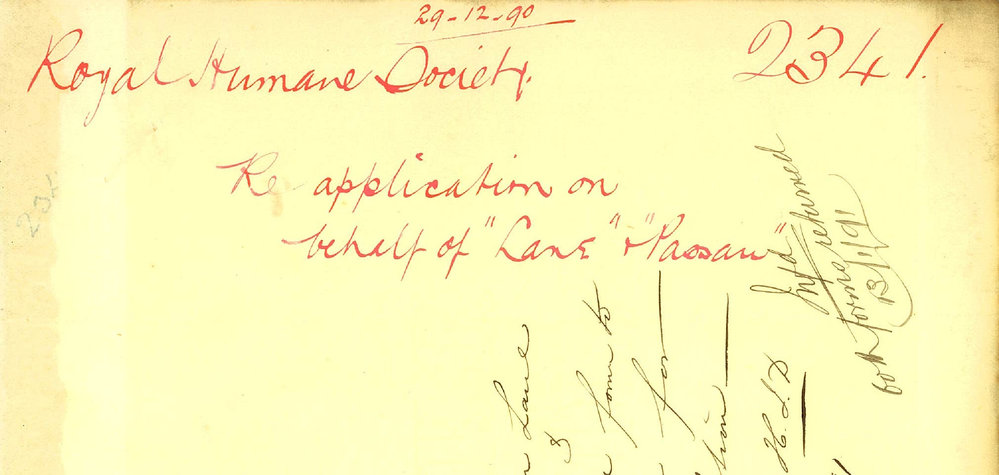 29-12-90
Royal Humane Society.
2341.
Re application on
behalf of "Lane" & "Passau"
Inf'd
forms returned
13/1/91
Lane
form to
for
H. S. D